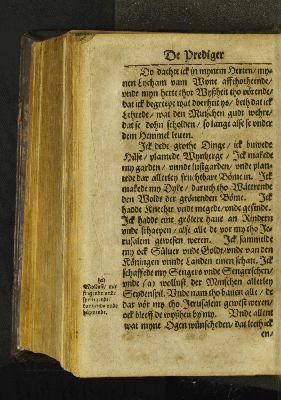 De Prediger
Do dachte ick in mynem Herten / my-
nen Lycham vam Wyne affthotheende /
vnde myn herte thor Wyßheit tho vörende /
dat ick begrepe wat dorheit ys / beth dat ick
lehrede / wat den Minschen gudt wehre /
dat se dohn scholden / so lange alse se vnder
dem Hemmel leuen.
Ick dede grothe Dinge / ick buwede
Hüse / plantede Wynberge / Ick makede
my garden / vnnde lustgarden / vnde plan-
tede dar allerley fruchtbare Böme in. Ick
makede my Dyke / daruth tho Wäterende
den Woldt der grönenden Böme. Ick
hadde Knechte vnde megede / vnde gesinde.
Ick hadde eine grötere haue an Rindern
vnde schapen / alse alle de vor my tho Je-
rusalem gewesen weren. Ick sammelde
my ock Sülver vnde Goldt / vnde van den
Köningen vnnde Landen einen schatt. Ick
schaffede my Sengers vnde Sengerschen /
vnde (a) wollust der Minschen allerley
Seydenspil. Vnde nam tho bauen alle / de
dar vör my tho Jerusalem gewest weren /
ock bleeff de wyßheit by my. Vnde allent
wat myne Ogen wünscheden / dat leeth ick
en /
(a)
Wollust /